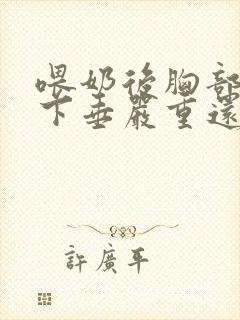 喂奶後胸部
下垂嚴重還
許廣平